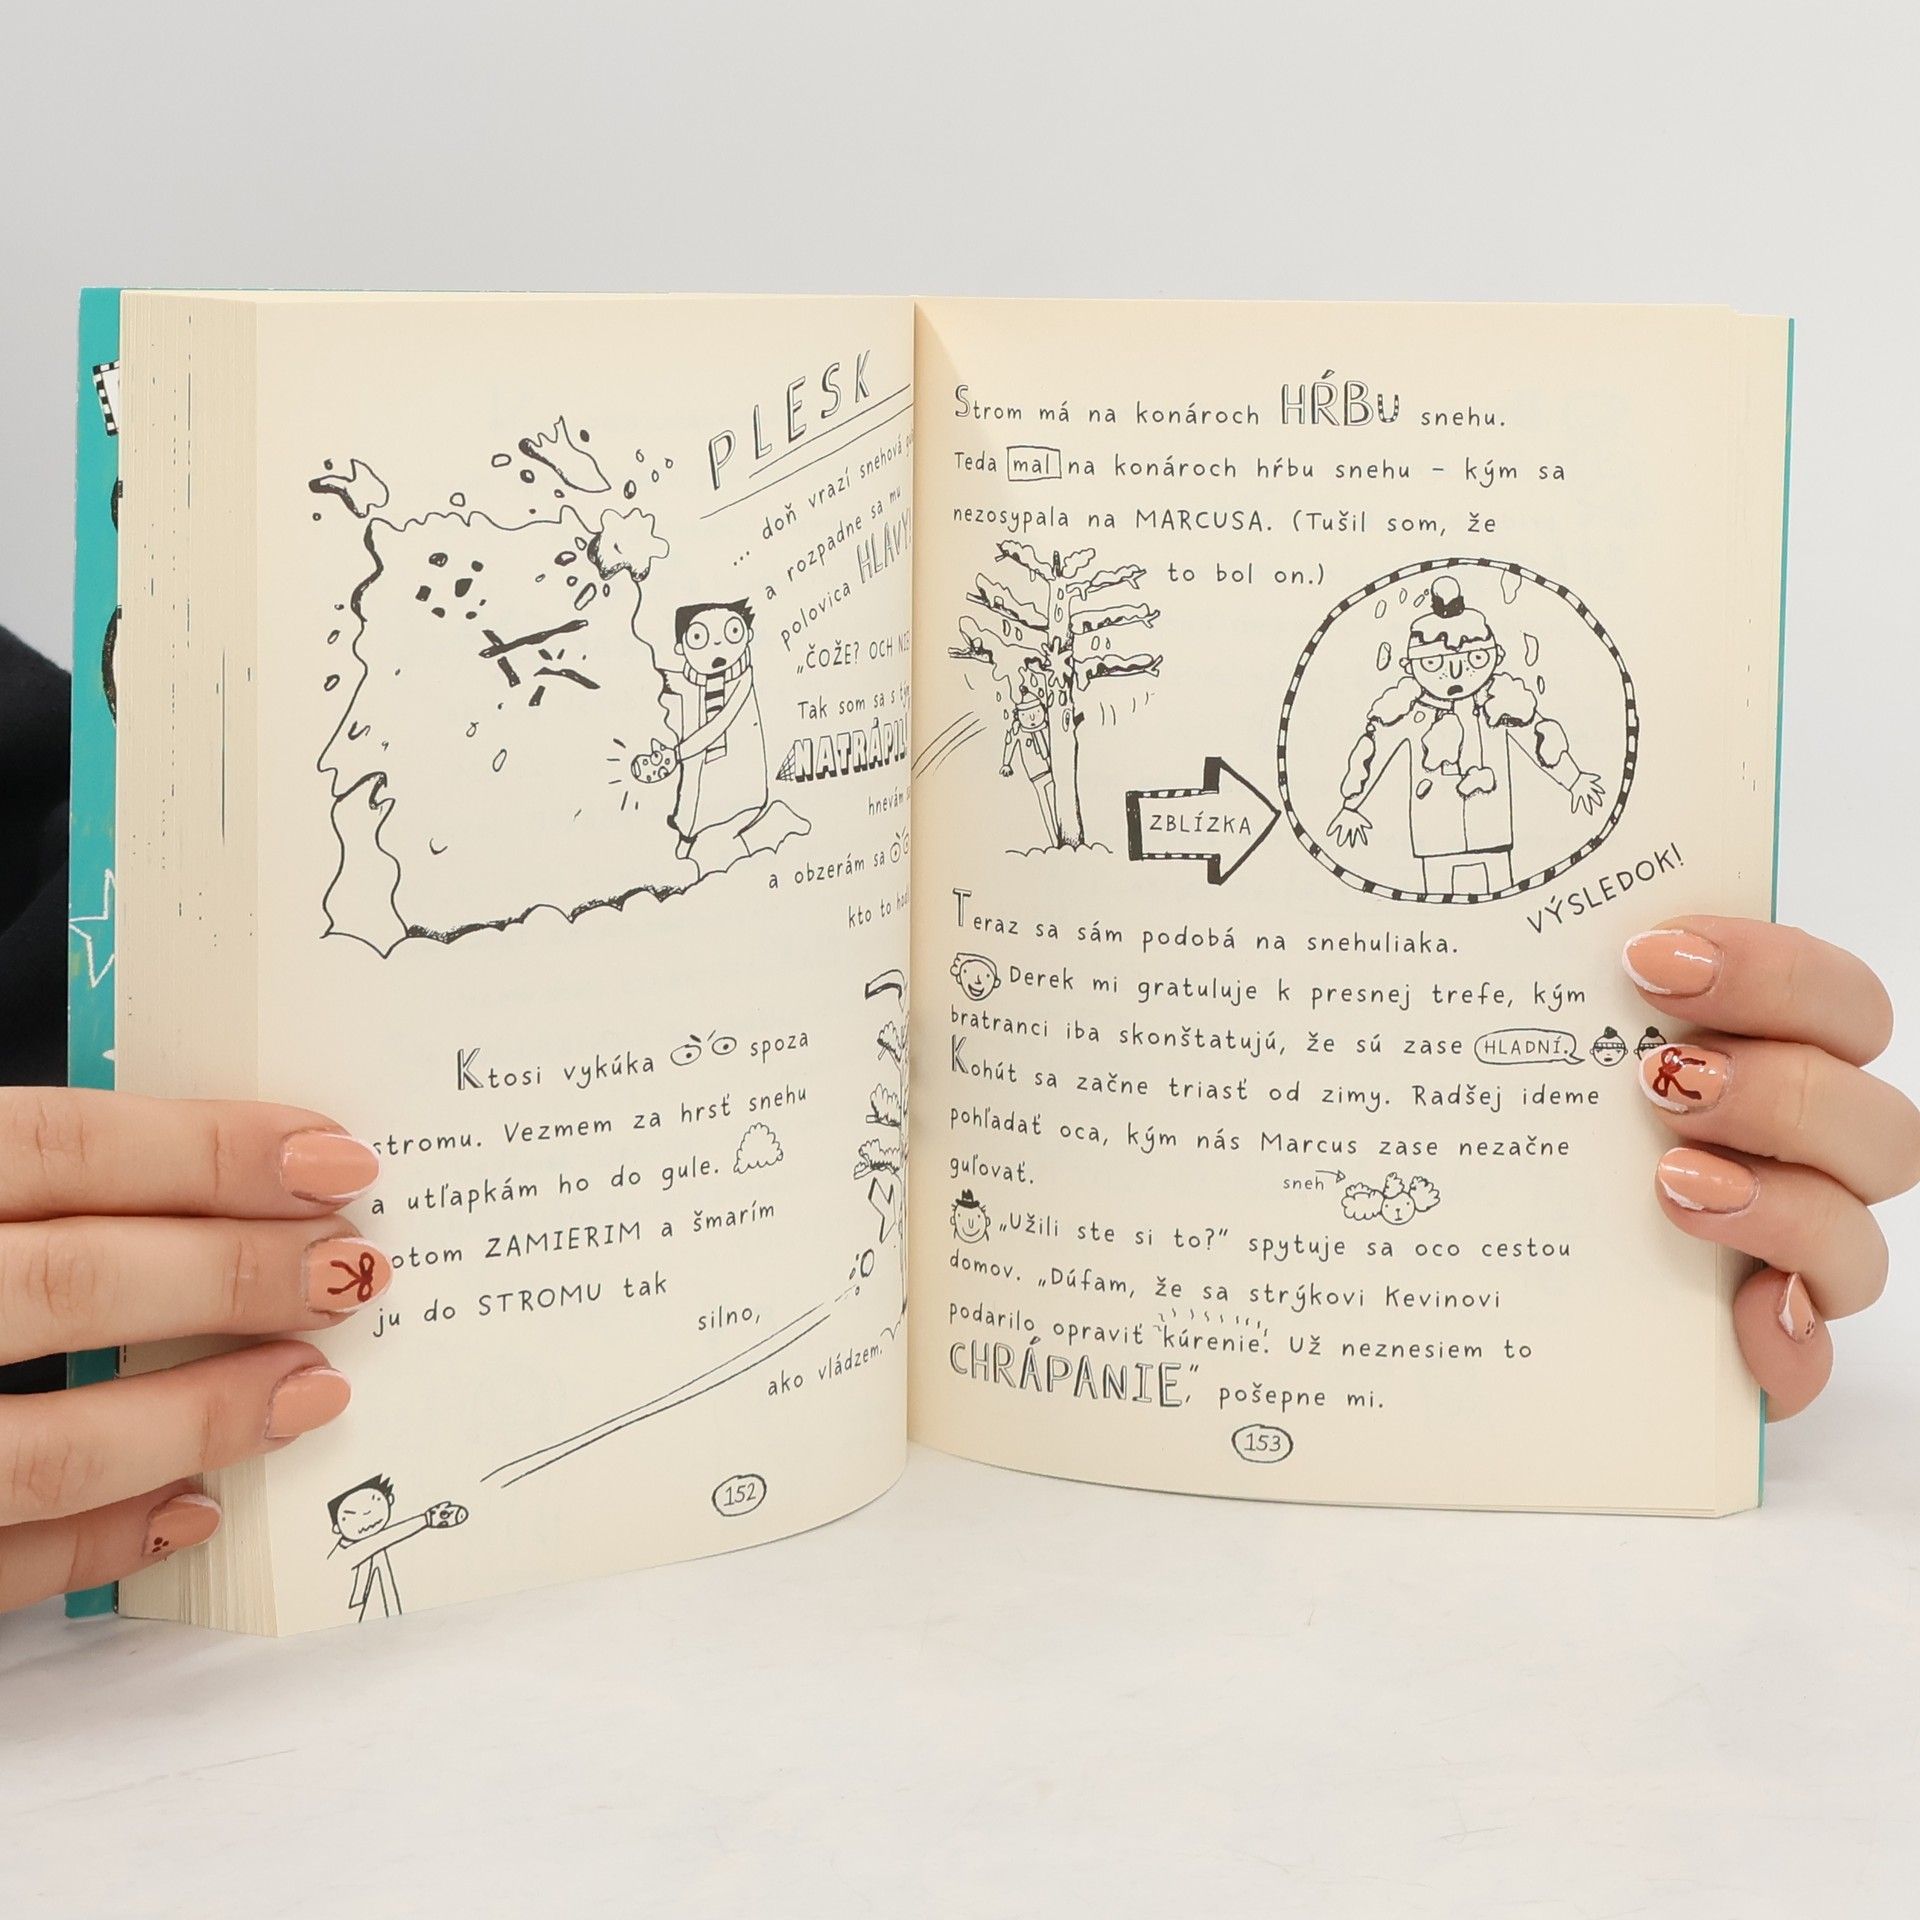 PLESK
... doň vrazí snehová
a rozpadne sa mu
polovica HLAVY!
„ČOŽE? OCH NIE!
Tak som sa s tým
NATRÁPIL
hnevám
a obzerám sa
kto to
Ktosi vykúka spoza
stromu. Vezmem za hrsť snehu
a utľapkám ho do gule.
otom ZAMIERIM a šmarím
ju do STROMU tak
silno,
ako vládzem.
152
Strom má na konároch HŔBU snehu.
Teda mal na konároch hŕbu snehu – kým sa
nezosypala na MARCUSA. (Tušil som, že
to bol on.)
ZBLÍZKA
VÝSLEDOK!
Teraz sa sám podobá na snehuliaka.
Derek mi gratuluje k presnej trefe, kým
bratranci iba skonštatujú, že sú zase HLADNÍ.
Kohút sa začne triasť od zimy. Radšej ideme
pohľadať oca, kým nás Marcus zase nezačne
guľovať.
sneh
„Užili ste si to?“ spytuje sa oco cestou
domov. „Dúfam, že sa strýkovi Kevinovi
podarilo opraviť kúrenie. Už neznesiem to
CHRÁPANIE,“ pošepne mi.
153